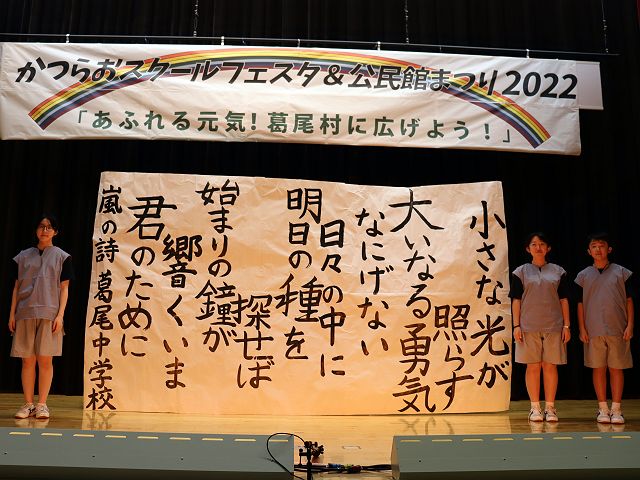 かつらおスクールフェスタ＆公民館まつり2022
「あふれる元気！葛尾村に広げよう！」
小さな光が
照らす
大いなる勇気
なにげない
日々の中に
明日の種を
探せば
始まりの鐘が
響くいま
君のために
嵐の詩 葛尾中学校